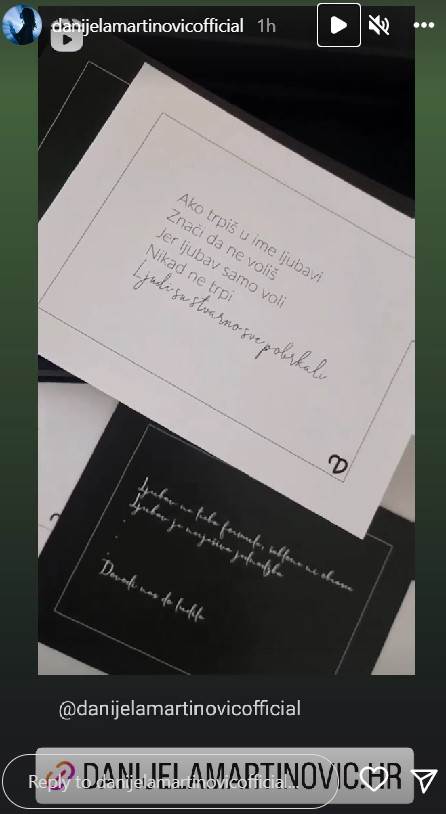 danijelamartinovicofficial 1h
Ako trpiš u ime ljubavi
Znači da ne voliš
Jer ljubav samo voli
Nikad ne trpi
Ljudi su stvarno sve pobrkali
D
Ljubav ne treba formule,
Ljubav je najveća
Dovodi nas do ludila
@danijelamartinovicofficial
DANIJELAMARTINOVIC.HR
Reply to danijelamartinovicofficial...